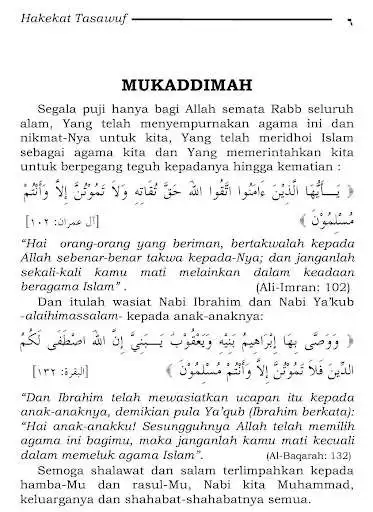 Hakekat Tasawuf
٦
MUKADDIMAH
Segala puji hanya bagi Allah semata Rabb seluruh
alam, Yang telah menyempurnakan agama ini dan
nikmat-Nya untuk kita, Yang telah meridhoi Islam
sebagai agama kita dan Yang memerintahkan kita
untuk berpegang teguh kepadanya hingga kematian :
﴿ يَـــأَيُّهَا الَّذِيْنَ ءَامَنُوا اتَّقُوا اللهَ حَقَّ تُقَاتِهِ وَلاَ تَمُوْتُنَّ إِلاَّ وَأَنْتُمْ
مُسْلِمُوْنَ ﴾ [آل عمران: ١٠٢]
“Hai orang-orang yang beriman, bertakwalah kepada
Allah sebenar-benar takwa kepada-Nya; dan janganlah
sekali-kali kamu mati melainkan dalam keadaan
beragama Islam” . (Ali-Imran: 102)
Dan itulah wasiat Nabi Ibrahim dan Nabi Ya'kub
-alaihimassalam- kepada anak-anaknya:
﴿ وَوَصَّى بِهَا إِبْرَاهِيمُ بَنِيْهِ وَيَعْقُوْبُ يَـــبَنِيَّ إِنَّ اللهَ اصْطَفَى لَكُمُ
الدِّينَ فَلاَ تَمُوْتُنَّ إِلاَّ وَأَنْتُمْ مُسْلِمُوْنَ ﴾ [البقرة: ١٣٢]
“Dan Ibrahim telah mewasiatkan ucapan itu kepada
anak-anaknya, demikian pula Ya'qub (Ibrahim berkata):
“Hai anak-anakku! Sesungguhnya Allah telah memilih
agama ini bagimu, maka janganlah kamu mati kecuali
dalam memeluk agama Islam”. (Al-Baqarah: 132)
Semoga shalawat dan salam terlimpahkan kepada
hamba-Mu dan rasul-Mu, Nabi kita Muhammad,
keluarganya dan shahabat-shahabatnya semua.